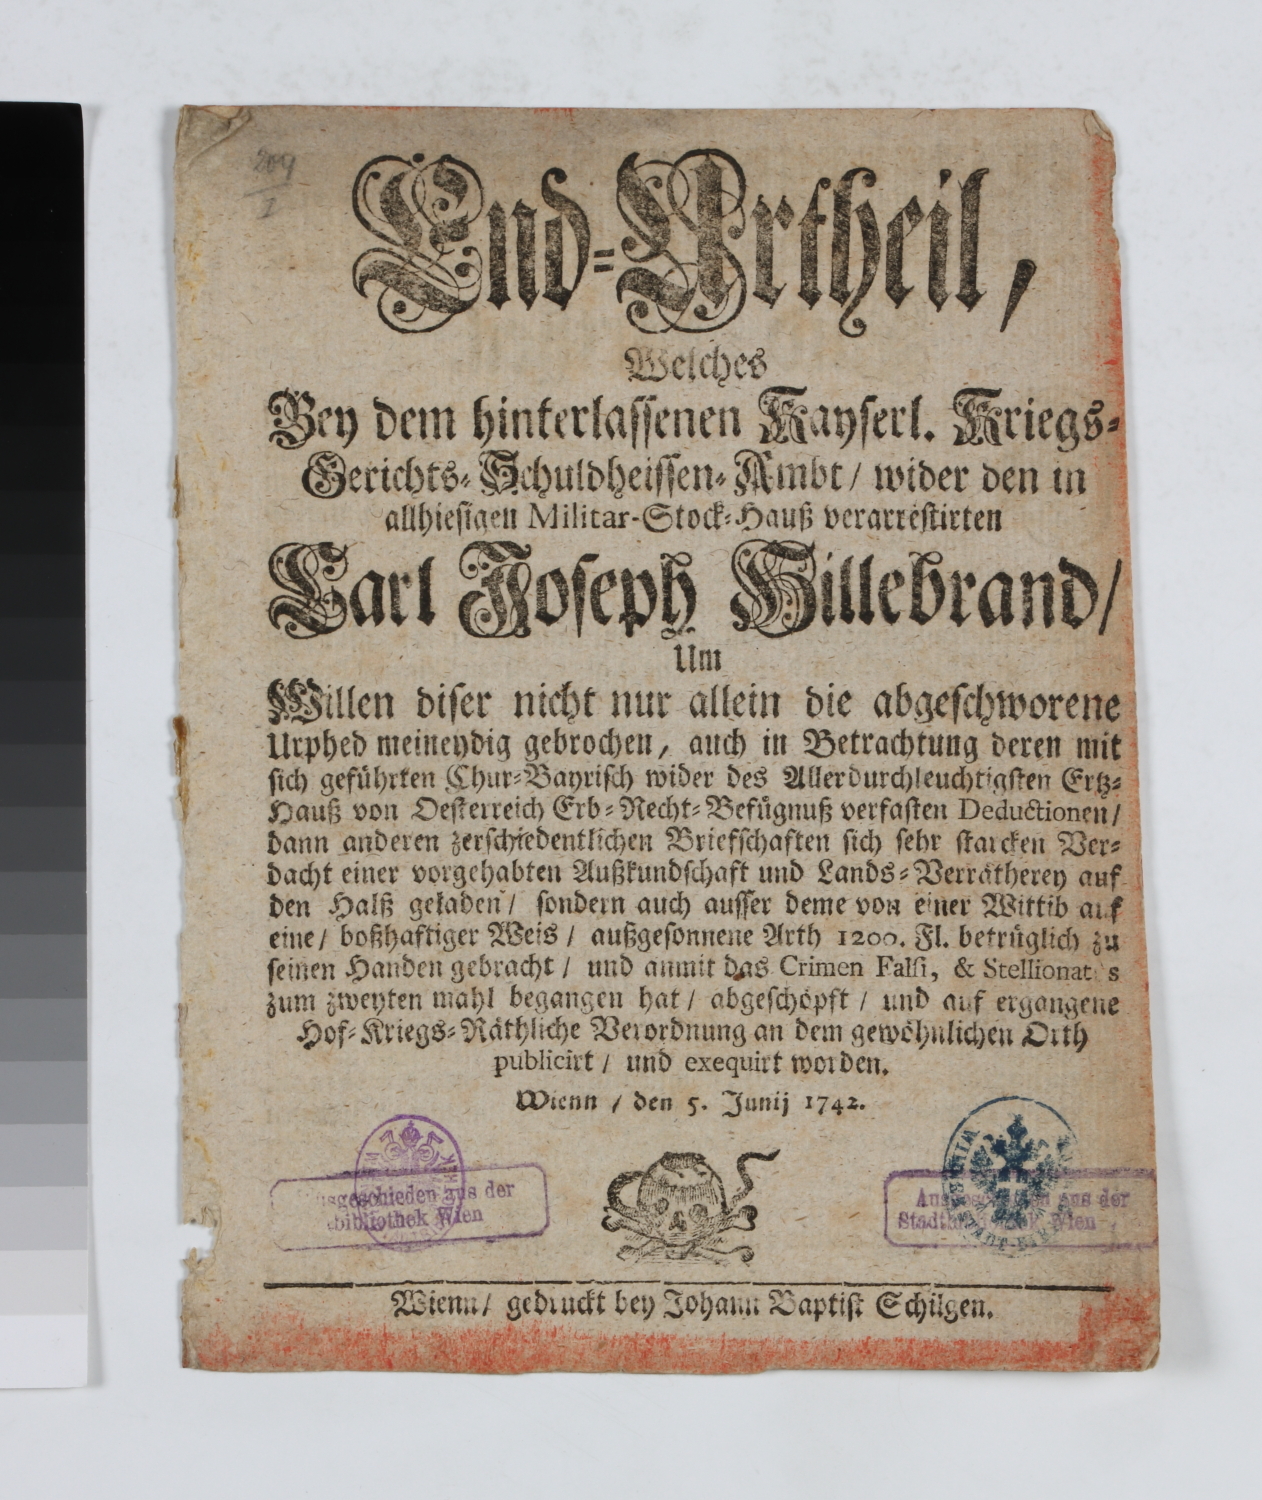 209
1
End-Urtheil,
Welches
Bey dem hinterlassenen Kayserl. Kriegs-
Gerichts-Schuldheissen-Ambt / wider den in
allhiesigen Militar-Stock-Hauß verarrestirten
Carl Joseph Hillebrand /
Um
Willen diser nicht nur allein die abgeschworene
Urphed meineydig gebrochen, auch in Betrachtung deren mit
sich geführten Chur-Bayrisch wider des Allerdurchleuchtigsten Ertz-
Hauß von Oesterreich Erb-Recht-Befügnuß verfasten Deductionen /
dann anderen zerschiedentlichen Briefschaften sich sehr starcken Ver-
dacht einer vorgehabten Außkundschaft und Lands-Verrätherey auf
den Halß geladen / sondern auch ausser deme von einer Wittib auf
eine / boßhaftiger Weis / außgesonnene Arth 1200. Fl. betrüglich zu
seinen Handen gebracht / und anmit das Crimen Falsi, & Stellionatus
zum zweyten mahl begangen hat / abgeschöpft / und auf ergangene
Hof-Kriegs-Räthliche Verordnung an dem gewöhnlichen Orth
publicirt / und exequirt worden.
Wienn / den 5. Junij 1742.
Ausgeschieden aus der
bibliothek Wien
aus der
Wien
Wienn / gedruckt bey Johann Baptist Schilgen.